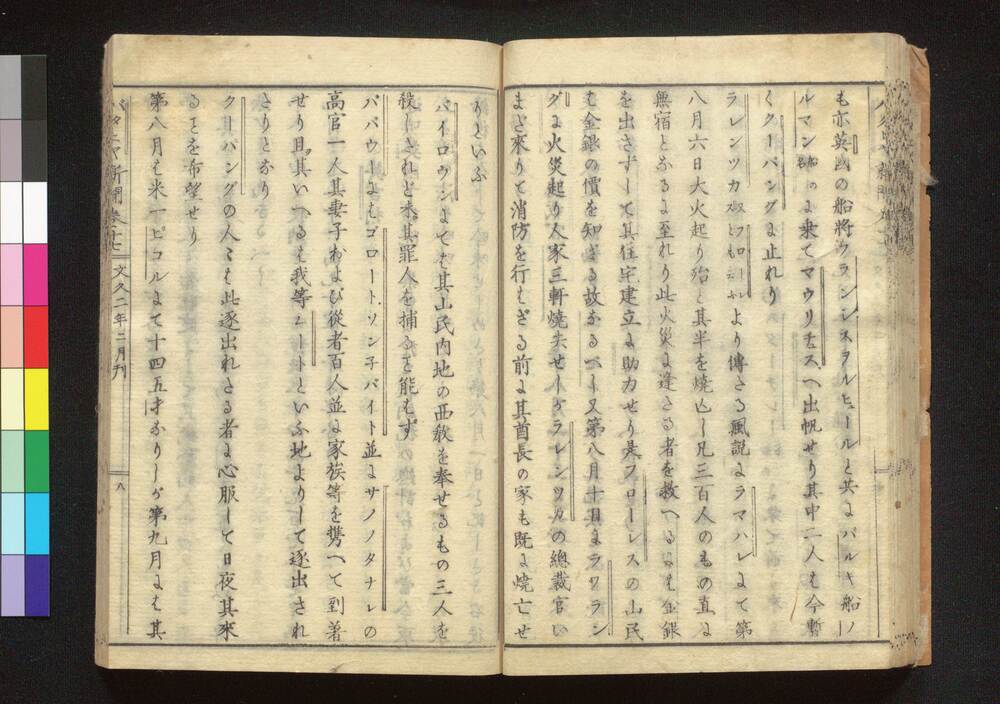 も亦英國の船將フランシスヲルヒュールと共にバルキ船ノ
ルマン船名に乗てマウリチュスへ出帆せり其中二人も今暫
くクーパングに止れり
ラレンツカ フローレス より傳さる風説にラマハレにて第
八月六日大火起り殆と其半を燒亡し凡三百人のもの直に
無宿となるに至れり此火災に逢さる者を救へるにも金銀
を出さすして其住宅建立に助力せり是フローレスの山民
も金銀の價を知さる故なるべし又第八月十日にラワラン
グに火災起り人家三軒焼失せしがラレンツカの總裁官い
まだ來りて消防を行もざる前に其酋長の家も既に焼亡せ
りといふ
パイロウンにても其山民内地の西教を奉せるもの三人を
殺しされど未其罪人を捕ると能もず
パパウーにもゴロートソン子バイト並にサノノタナレの
高官一人其妻子および從者百人並に家族等を携へて到着
せり且其いへるも我等ートといふ地よりして逐出され
さりとなり
クーパングの人々も此逐出れさる者に心服して日夜其來
るとを布望せり
第八月も米一ピコルにて十四五オなりしが第九月にも其
バタビヤ新聞巻十七 文久二年二月刊 八